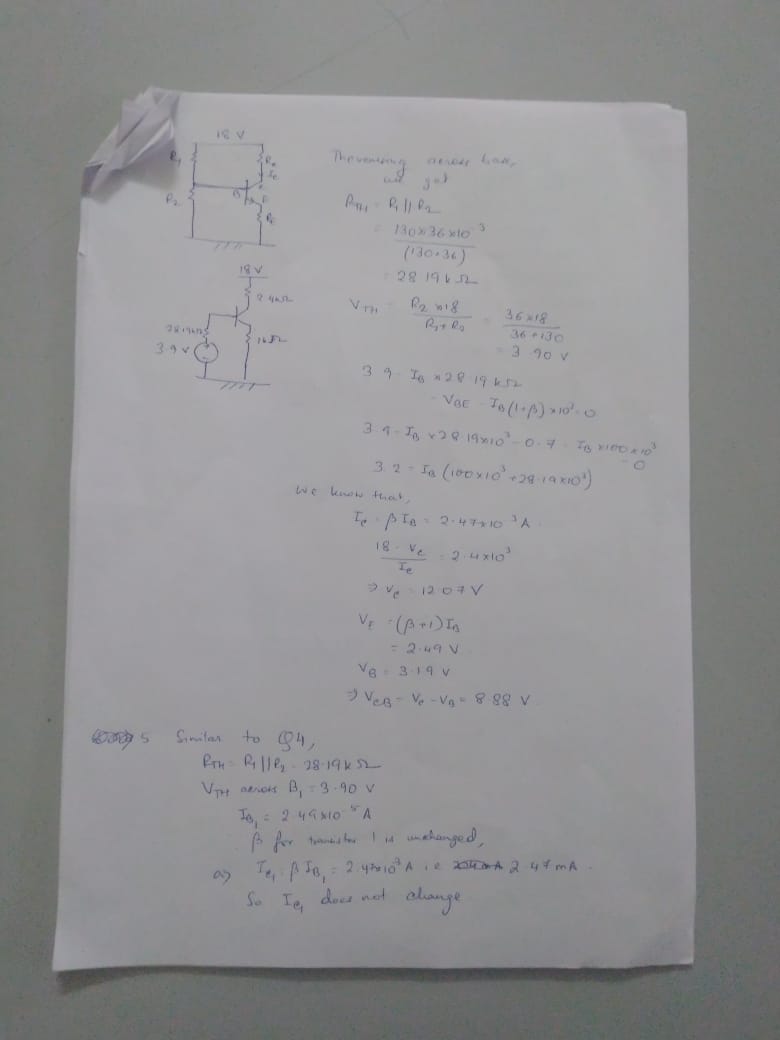 18 V
R1
Rc
Ic
R2
B
E
RE
18 V
2.4kΩ
28.19kΩ
1kΩ
3.9 V
Thevening across base,
we get
RTH = R1 || R2
= 130x36x10^3
(130+36)
= 28.19 kΩ
VTH = R2 x18 = 36x18
R1+R2 36+130
= 3.90 V
3.9 - IB x28.19 kΩ
- VBE - IB(1+β)x10^3 = 0
3.9 - IB x28.19x10^3 - 0.7 - IB x100x10^3
= 0
3.2 = IB (100x10^3 + 28.19x10^3)
We know that,
Ic = βIB = 2.47x10^-3 A.
18 - Vc = 2.4x10^3
Ic
⇒ Vc = 12.07 V
VE = (β+1)IB
= 2.49 V
VB = 3.19 V
⇒ VCB = Vc - VB = 8.88 V
5 Similar to Q4,
RTH = R1 || R2 = 28.19k Ω
VTH across B1 = 3.90 V
IB1 = 2.49x10^-5 A
β for transistor 1 is unchanged,
a) Ic1 = βIB1 = 2.47x10^-3 A i.e 2.47 mA.
So Ic1 does not change